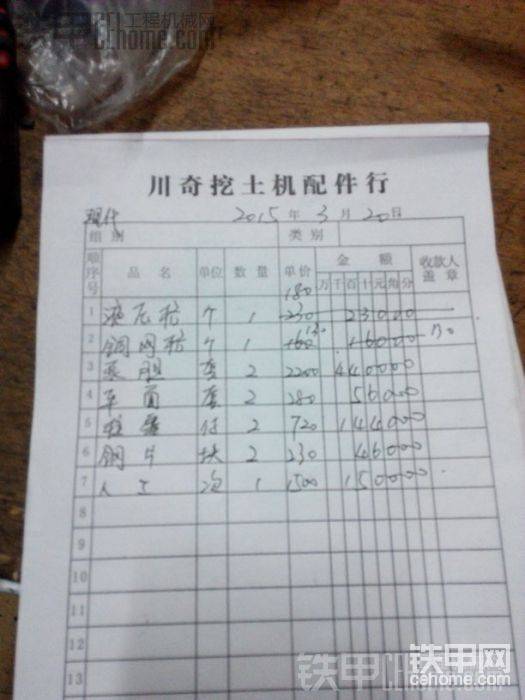 铁甲工程机械网
cehome.com
川奇挖土机配件行
现代 2015年3月20日
组别 类别
顺序号 品名 单位 数量 单价 金额 收款人盖章
万千百十元角分
180
1 个 1 230 23000
130
2 个 1 160 16000 130
3 泵胆 套 2 2200 440000
4 套 2 280 56000
5 付 2 720 144000
6 钢片 块 2 230 46000
7 人工 1 1500 150000
8
9
10
11
12
13
铁甲网
cehome.com